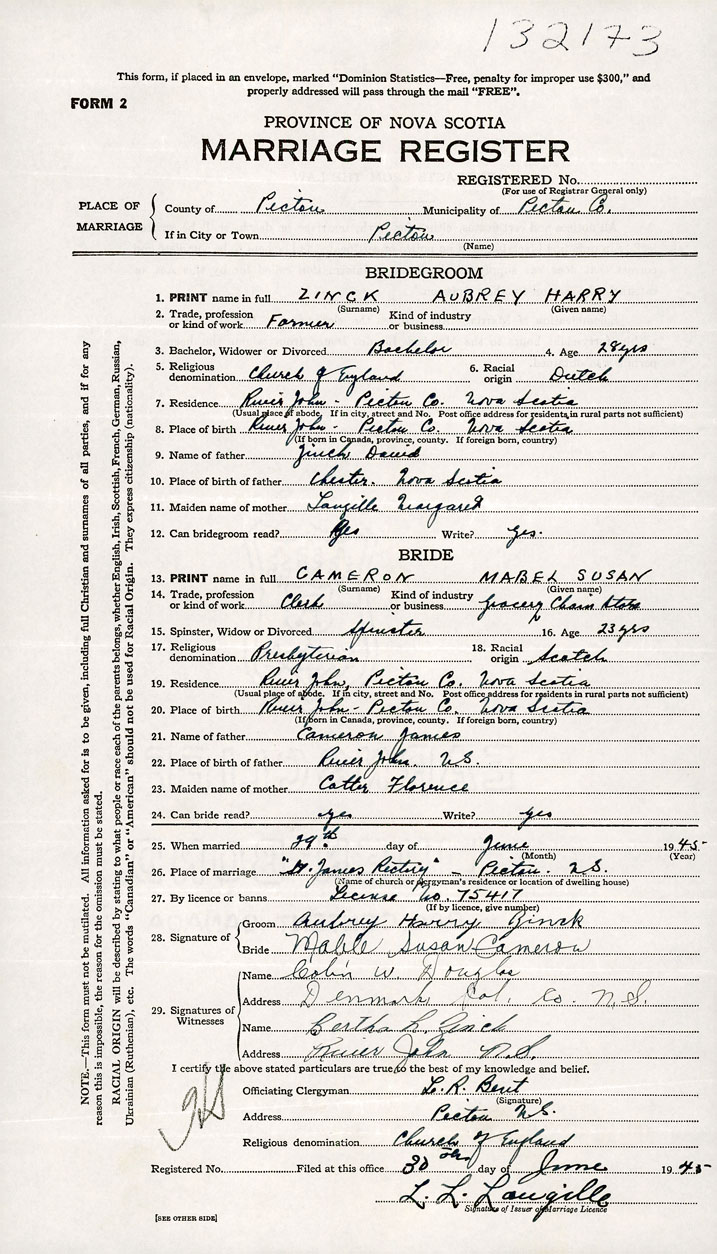 132173
This form, if placed in an envelope, marked "Dominion Statistics—Free, penalty for improper use $300," and
properly addressed will pass through the mail "FREE".
FORM 2
PROVINCE OF NOVA SCOTIA
MARRIAGE REGISTER
REGISTERED No.
(For use of Registrar General only)
PLACE OF MARRIAGE
County of Pictou Municipality of Pictou Co.
If in City or Town Pictou
(Name)
BRIDEGROOM
1. PRINT name in full ZINCK AUBREY HARRY
(Surname) (Given name)
2. Trade, profession or kind of work Farmer Kind of industry or business
3. Bachelor, Widower or Divorced Bachelor 4. Age 28 yrs
5. Religious denomination Church of England 6. Racial origin Dutch
7. Residence River John - Pictou Co. Nova Scotia
(Usual place of abode. If in city, street and No. Post office address for residents in rural parts not sufficient)
8. Place of birth River John - Pictou Co. Nova Scotia
(If born in Canada, province, county. If foreign born, country)
9. Name of father Zinck David
10. Place of birth of father Chester. Nova Scotia
11. Maiden name of mother Langille Margaret
12. Can bridegroom read? Yes Write? yes.
BRIDE
13. PRINT name in full CAMERON MABEL SUSAN
(Surname) (Given name)
14. Trade, profession or kind of work Clerk Kind of industry or business Grocery Chain Store
15. Spinster, Widow or Divorced Spinster 16. Age 23 yrs
17. Religious denomination Presbyterian 18. Racial origin Scotch
19. Residence River John, Pictou Co. Nova Scotia
(Usual place of abode. If in city, street and No. Post office address for residents in rural parts not sufficient)
20. Place of birth River John - Pictou Co. Nova Scotia
(If born in Canada, province, county. If foreign born, country)
21. Name of father Cameron James
22. Place of birth of father River John. N.S.
23. Maiden name of mother Cotter Florence
24. Can bride read? yes Write? yes
25. When married 29th day of June 1945
(Month) (Year)
26. Place of marriage "St. James Rectory" - Pictou. N.S.
(Name of church or clergyman's residence or location of dwelling house)
27. By licence or banns License No. 75417
(If by licence, give number)
28. Signature of
Groom Aubrey Harry Zinck
Bride Mable Susan Cameron
29. Signatures of Witnesses
Name Colin W. Douglas
Address Denmark Col. Co. N.S.
Name Bertha L. Zinck
Address River John N.S.
I certify the above stated particulars are true to the best of my knowledge and belief.
Officiating Clergyman L. R. Bent
(Signature)
Address Pictou N.S.
Religious denomination Church of England
Registered No. Filed at this office 30th day of June 1945
L. L. Langille
Signature of Issuer of Marriage Licence
[SEE OTHER SIDE]
NOTE.—This form must not be mutilated. All information asked for is to be given, including full Christian and surnames of all parties, and if for any
reason this is impossible, the reason for the omission must be stated.
RACIAL ORIGIN will be described by stating to what people or race each of the parents belongs, whether English, Irish, Scottish, French, German, Russian,
Ukrainian (Ruthenian), etc. The words "Canadian" or "American" should not be used for Racial Origin. They express citizenship (nationality).